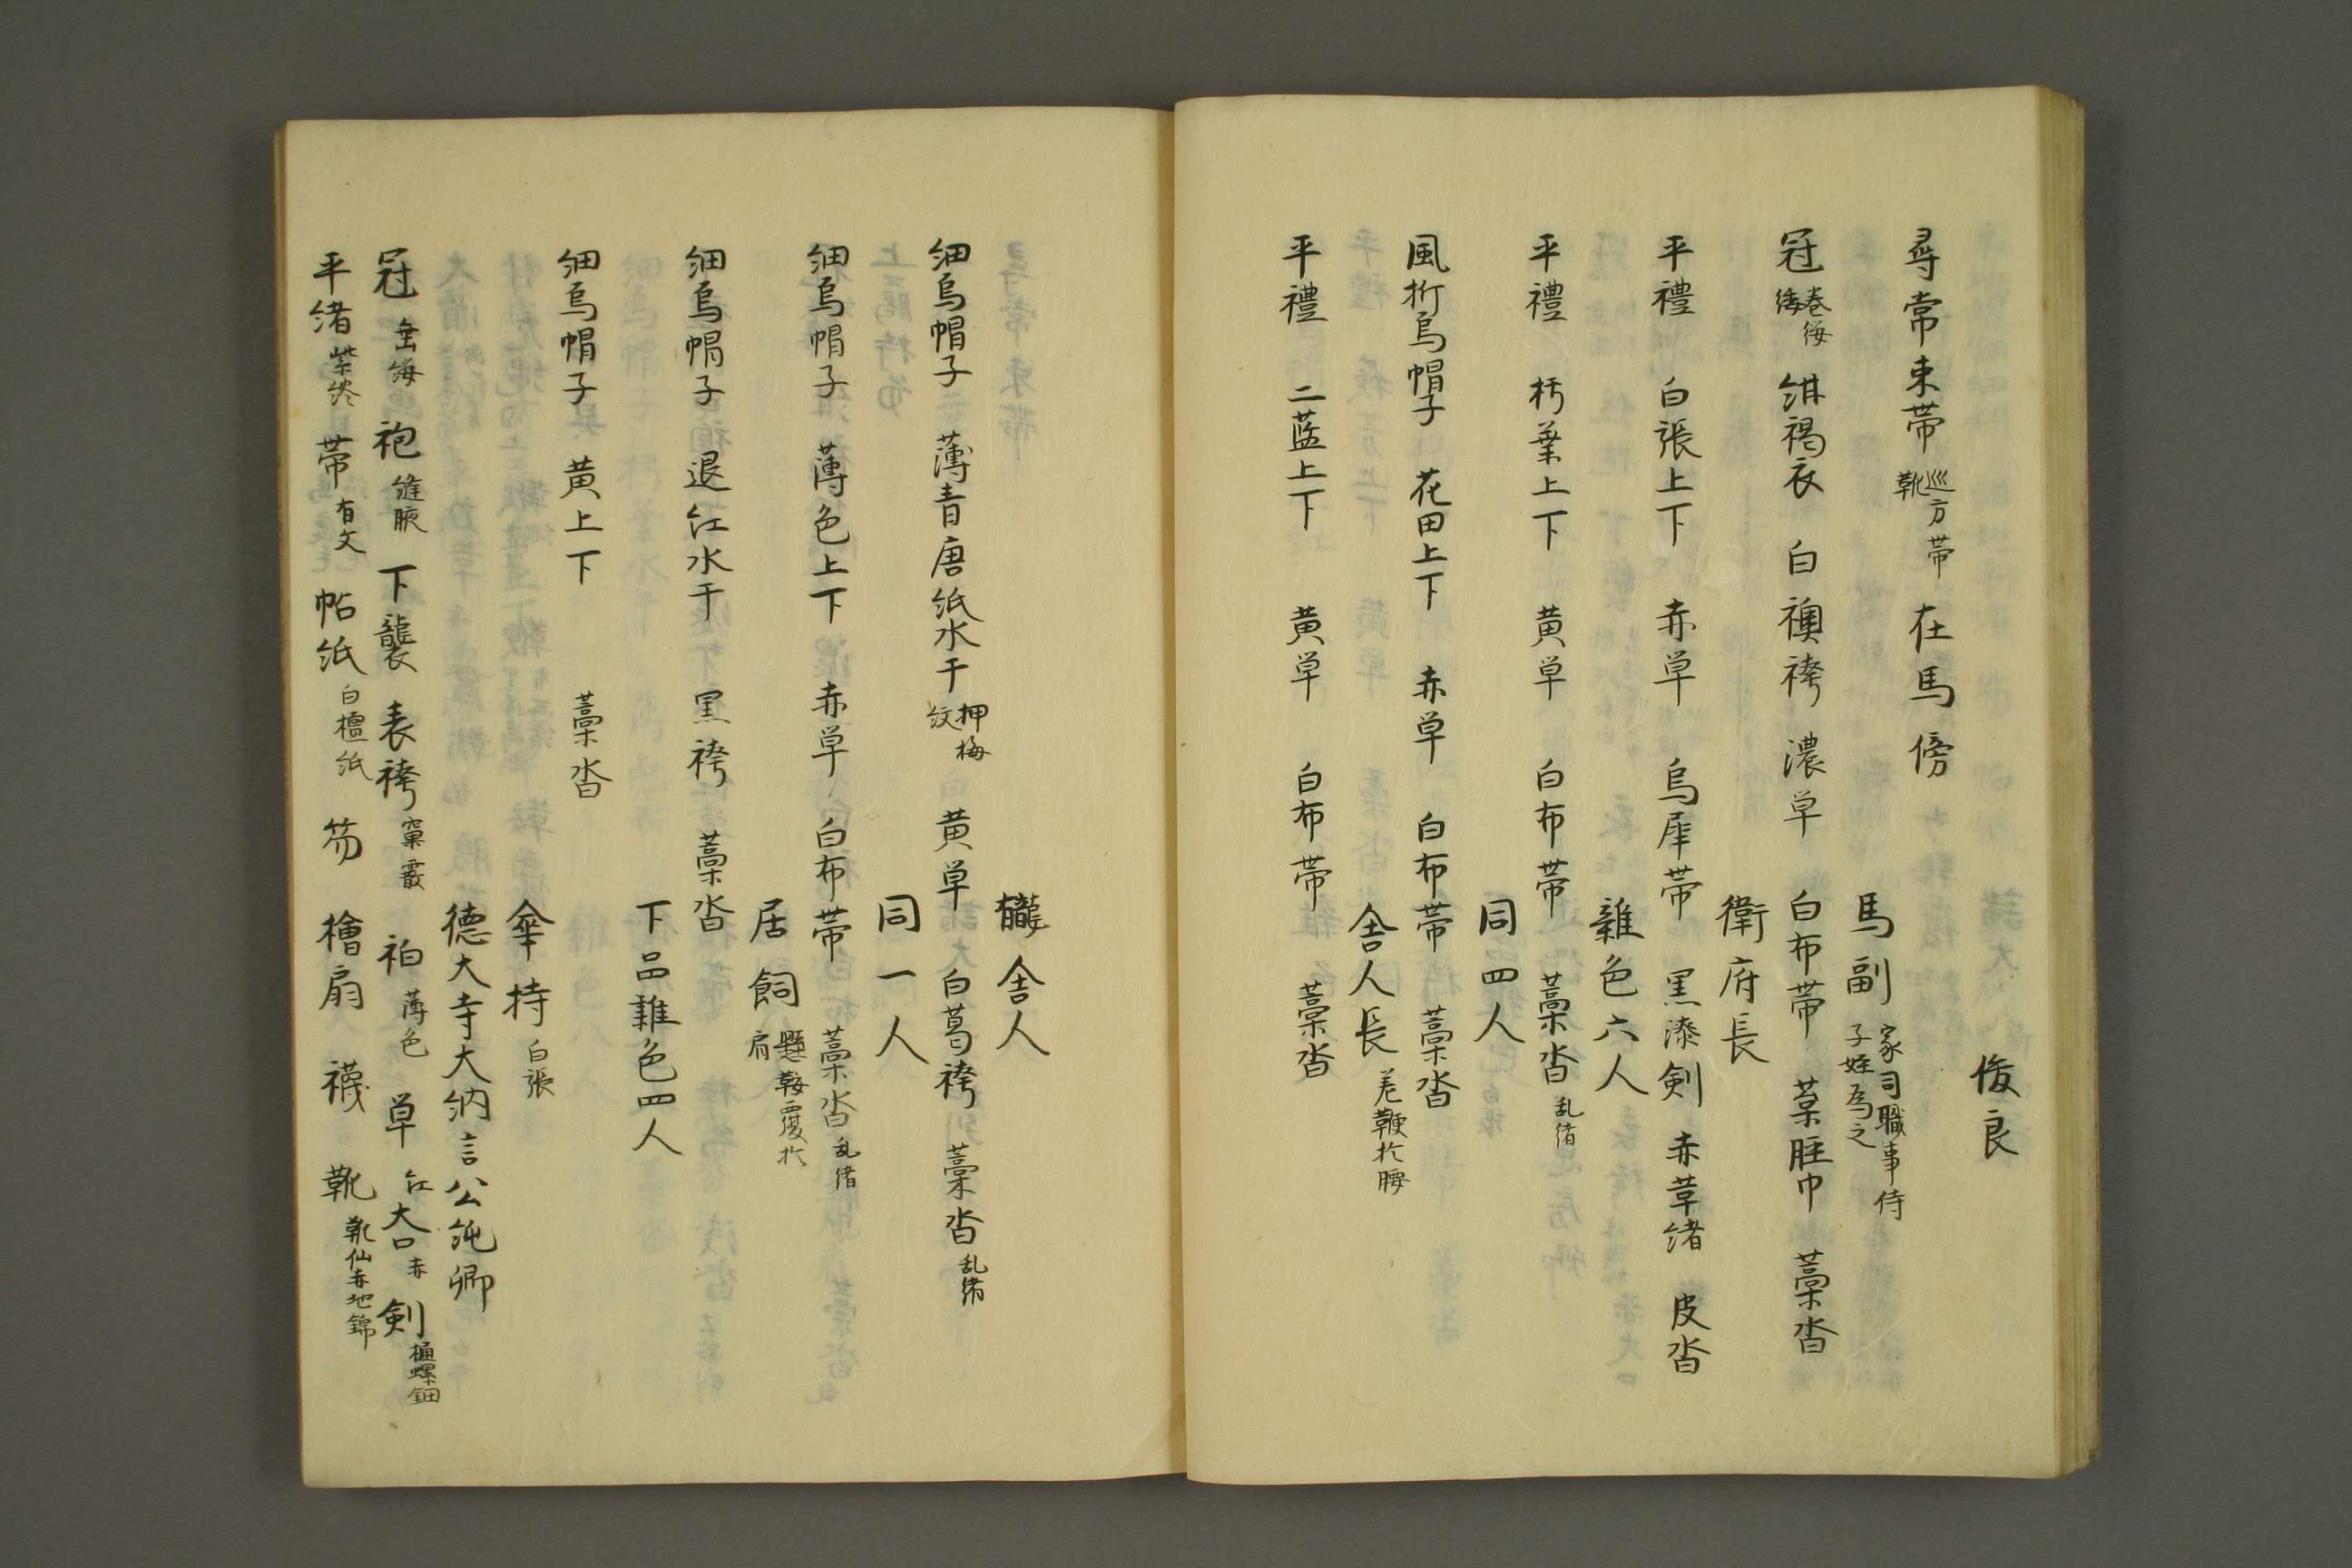 俊良
尋常束帯 巡方帯靴 在馬傍
馬副 家司職事侍子姪為之
冠 巻纓緌 紺褐衣 白襖袴 濃単 白布帯 葉脛巾 藁沓
衛府長
平禮 白張上下 赤単 烏犀帯 黒漆剣 赤草緒 皮沓
雑色六人
平禮 朽葉上下 黄単 白布帯 藁沓 乱緒
同四人
風折烏帽子 花田上下 赤単 白布帯 藁沓
舎人長 差鞭於腰
平禮 二藍上下 黄単 白布帯 藁沓
舎人
細烏帽子 薄青唐紙水干 押梅紋 黄単 白葛袴 藁沓 乱緒
同一人
細烏帽子 薄色上下 赤単 白布帯 藁沓 乱緒
居飼 懸鞍覆於肩
細烏帽子 退紅水干 黒袴 藁沓
下品雑色四人
細烏帽子 黄上下 藁沓
傘持 白張
德大寺大納言公純卿
冠 垂纓 袍 縫腋 下襲 表袴 窠霰 衵 薄色 単 紅 大口 赤 剣 樋螺鈿
平緒 紫淡 帯 有文 帖紙 白檀紙 笏 檜扇 襪 靴 靴仙赤地錦